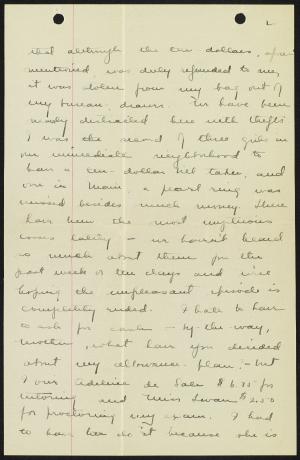 2
that although the ten dollars,
mentioned, was duly refunded to me,
it was stolen from my bag out of
my bureau drawer. We have been
nearly distracted here with thefts
I was the second of three girls in
our immediate neighborhood to
have a ten-dollar bill taken, and
one in Main, a pearl ring was
missed besides much money. There
have been the most mysterious
losses lately - we haven't heard
so much about them for the
past week or ten days and we're
hoping the unpleasant episode is
completely ended. I hate to have
to ask for cash - by-the-way,
mother, what have you decided
about my allowance plan? - but
I owe Adeline de Sale $6.75 for
tutoring and Miss Swan $2.50
for proctoring my exam. I had
to have her do it because she is